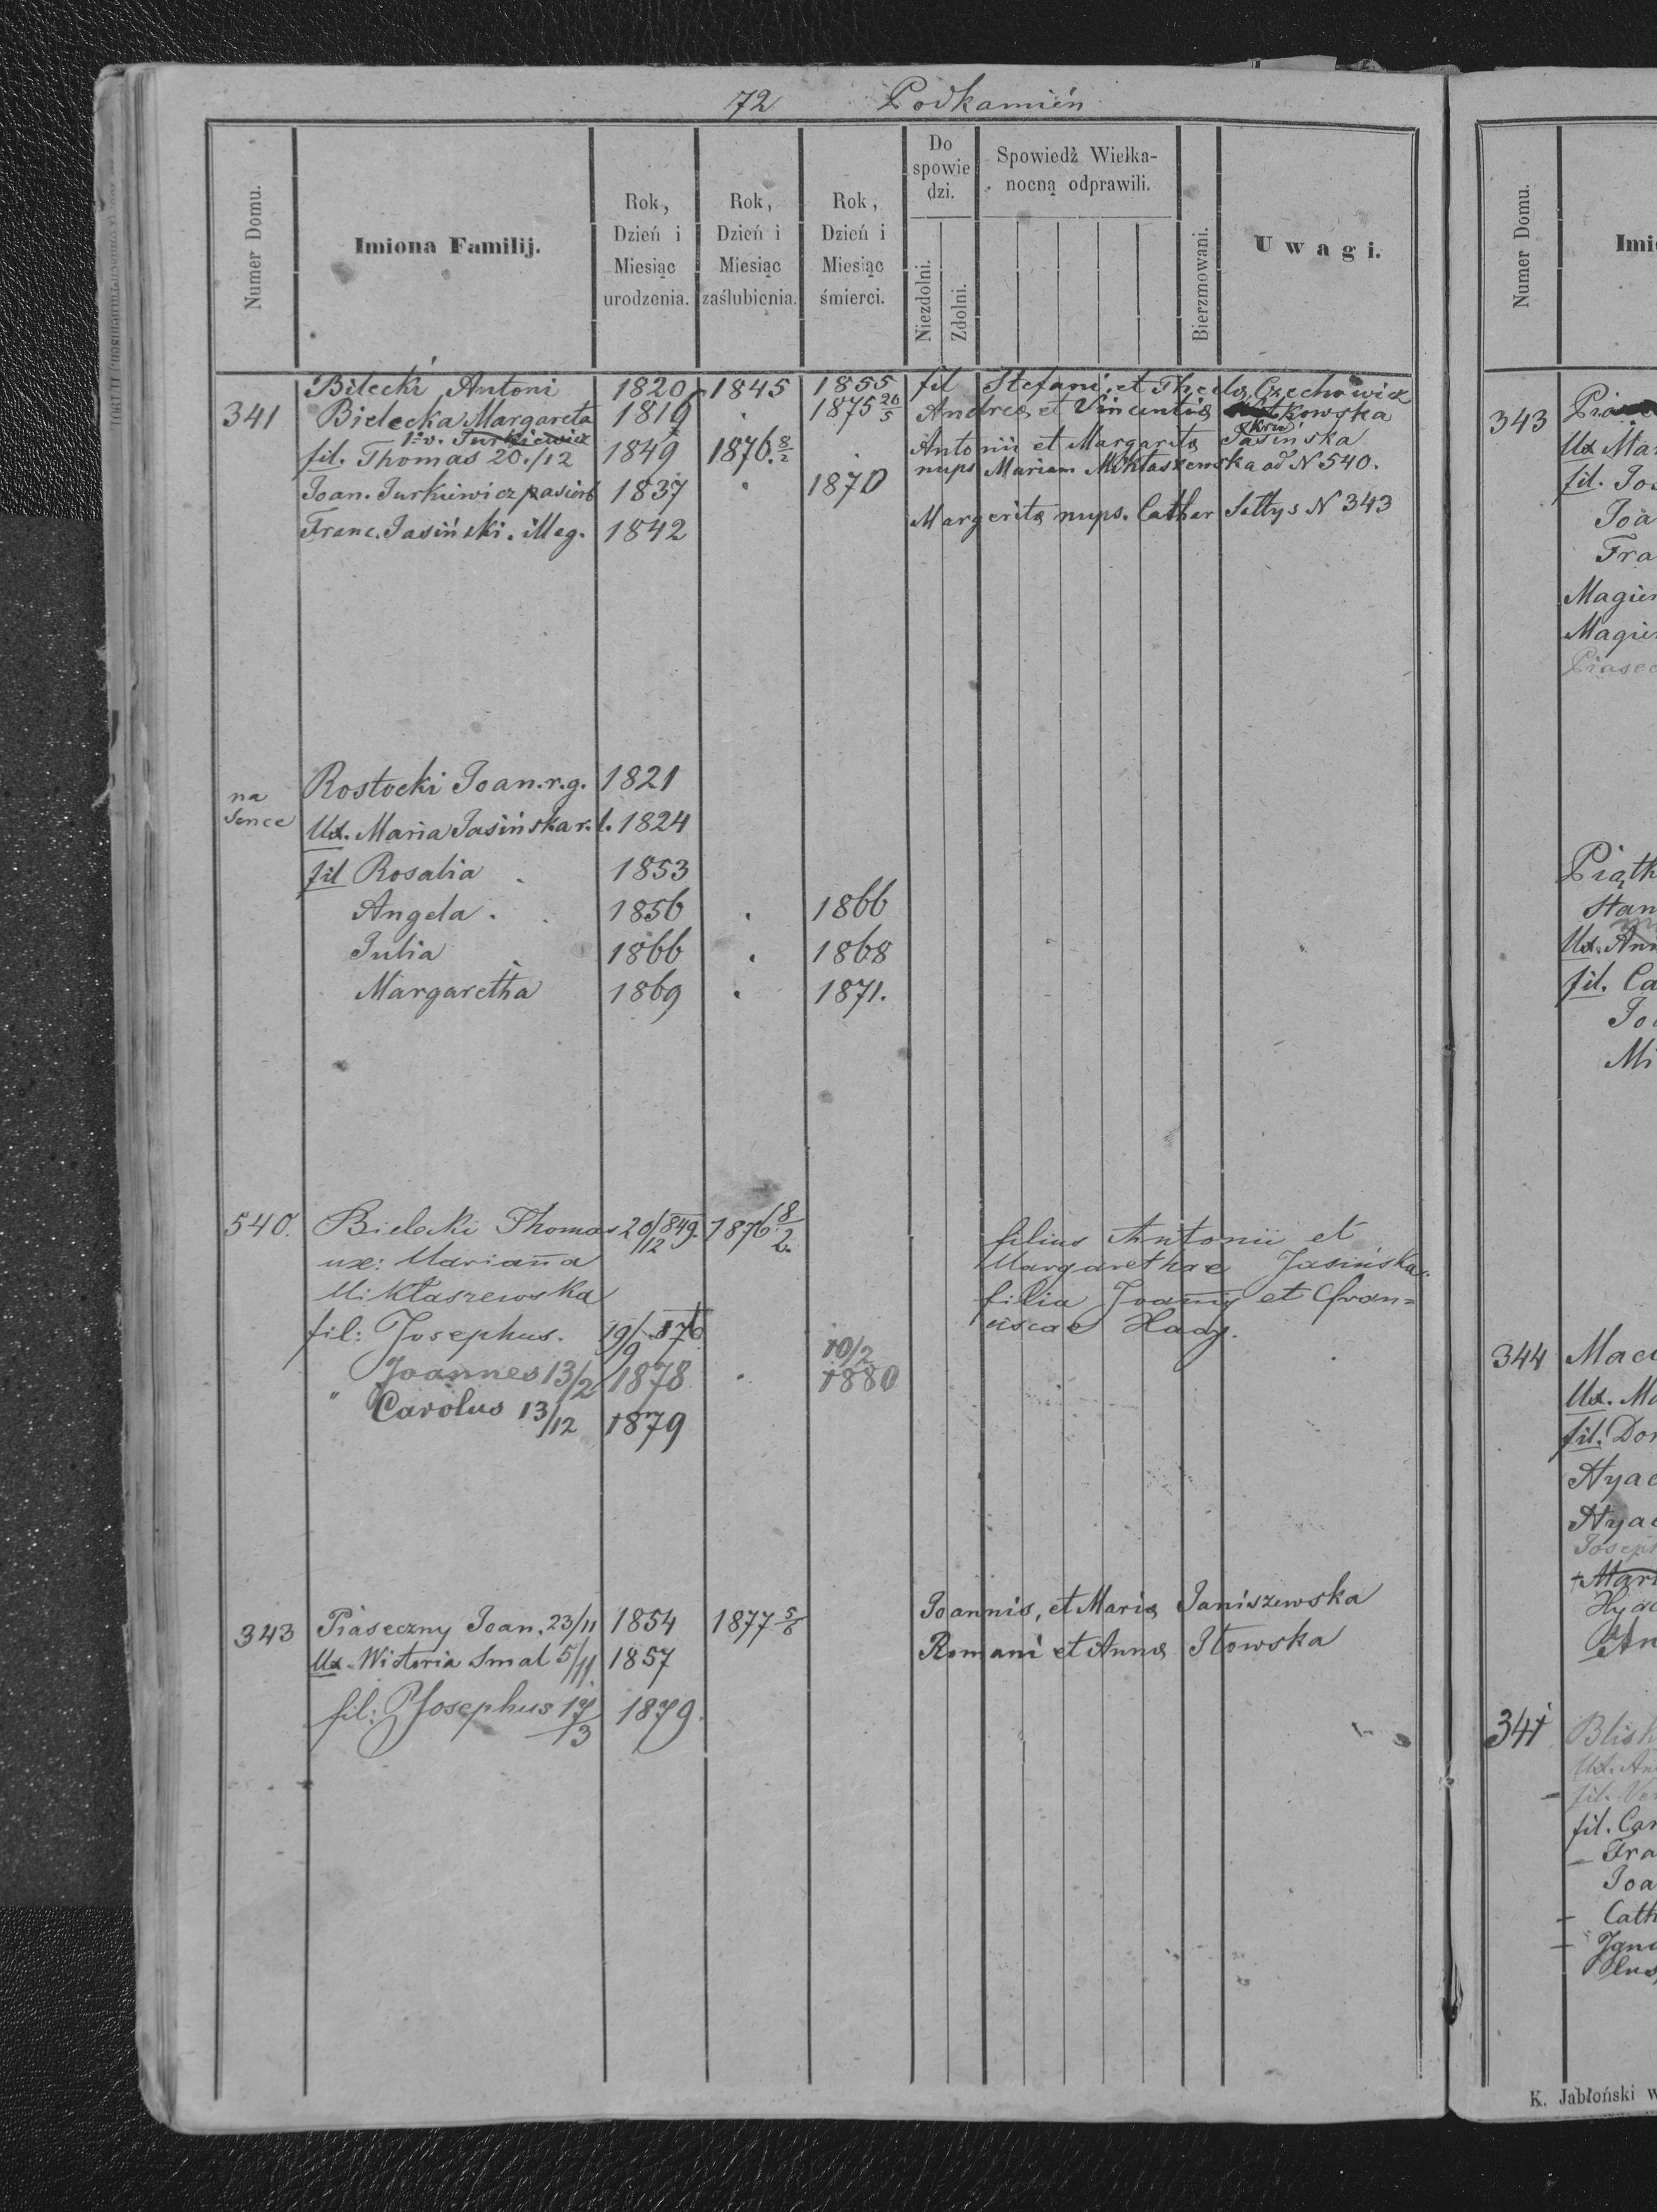 72 Podkamień
Numer Domu.
Imiona Familij.
Rok, Dzień i Miesiąc urodzenia.
Rok, Dzień i Miesiąc zaślubienia.
Rok, Dzień i Miesiąc śmierci.
Do spowiedzi.
Niezdolni.
Zdolni.
Spowiedź Wielka-
nocną odprawili.
Bierzmowani.
Uwagi.
Bilecki Antoni 1820 1845 1855 fil Stefani et Theclæ Czechowicz
341 Bielecka Margareta 1819 1875 20/5 Andreæ et Vincentiæ
1o v. Turkiewicz
fil. Thomas 20./12 1849 1876. 8/2 Antonii et Margaritæ Jasińska
nups Mariam Miktaszewska ad N 540.
Joan. Turkiewicz pasierb 1837 1870
Franc. Jasiński. illeg. 1842 Margeritæ nups. Cather Sattys N 343
na
Rostocki Joan. r. g. 1821
Ux. Maria Jasińska r. l. 1824
fil Rosalia 1853
Angela 1856 1866
Julia 1866 1868
Margaretha 1869 1871.
540. Bielecki Thomas 20/12 849. 1876 8/2 filius Antonii et
ux: Marianna Margarethae Jasińska
Miktaszewska filia Joannis et Fran=
fil: Josephus. 19/9 876 ciscae
Joannes 13/2 1878 10/2 1880
" Carolus 13/12 1879
343 Piaseczny Joan. 23/11 1854 1877 5/6 Joannis, et Mariæ Janiszewska
Ux. Wictoria Smal 5/11 1857 Romani et Annæ Itowska
fil: Josephus 17/3 1879.
Numer Domu.
Imi
343
Ux Mar
fil. Jos
Joa
Fra
Magier
Magier
Piasec
Piątk
Stan
Ux. Ann
fil. Ca
Jo
Mi
344 Mac
Ux. Ma
fil. Dor
Hyac
Hyac
Joseph
+ Mari
Hyac
An
341 Blish
Ux. An
fil. Ver
fil. Car
Fra
Joa
Cath
Igna
K. Jabłoński w